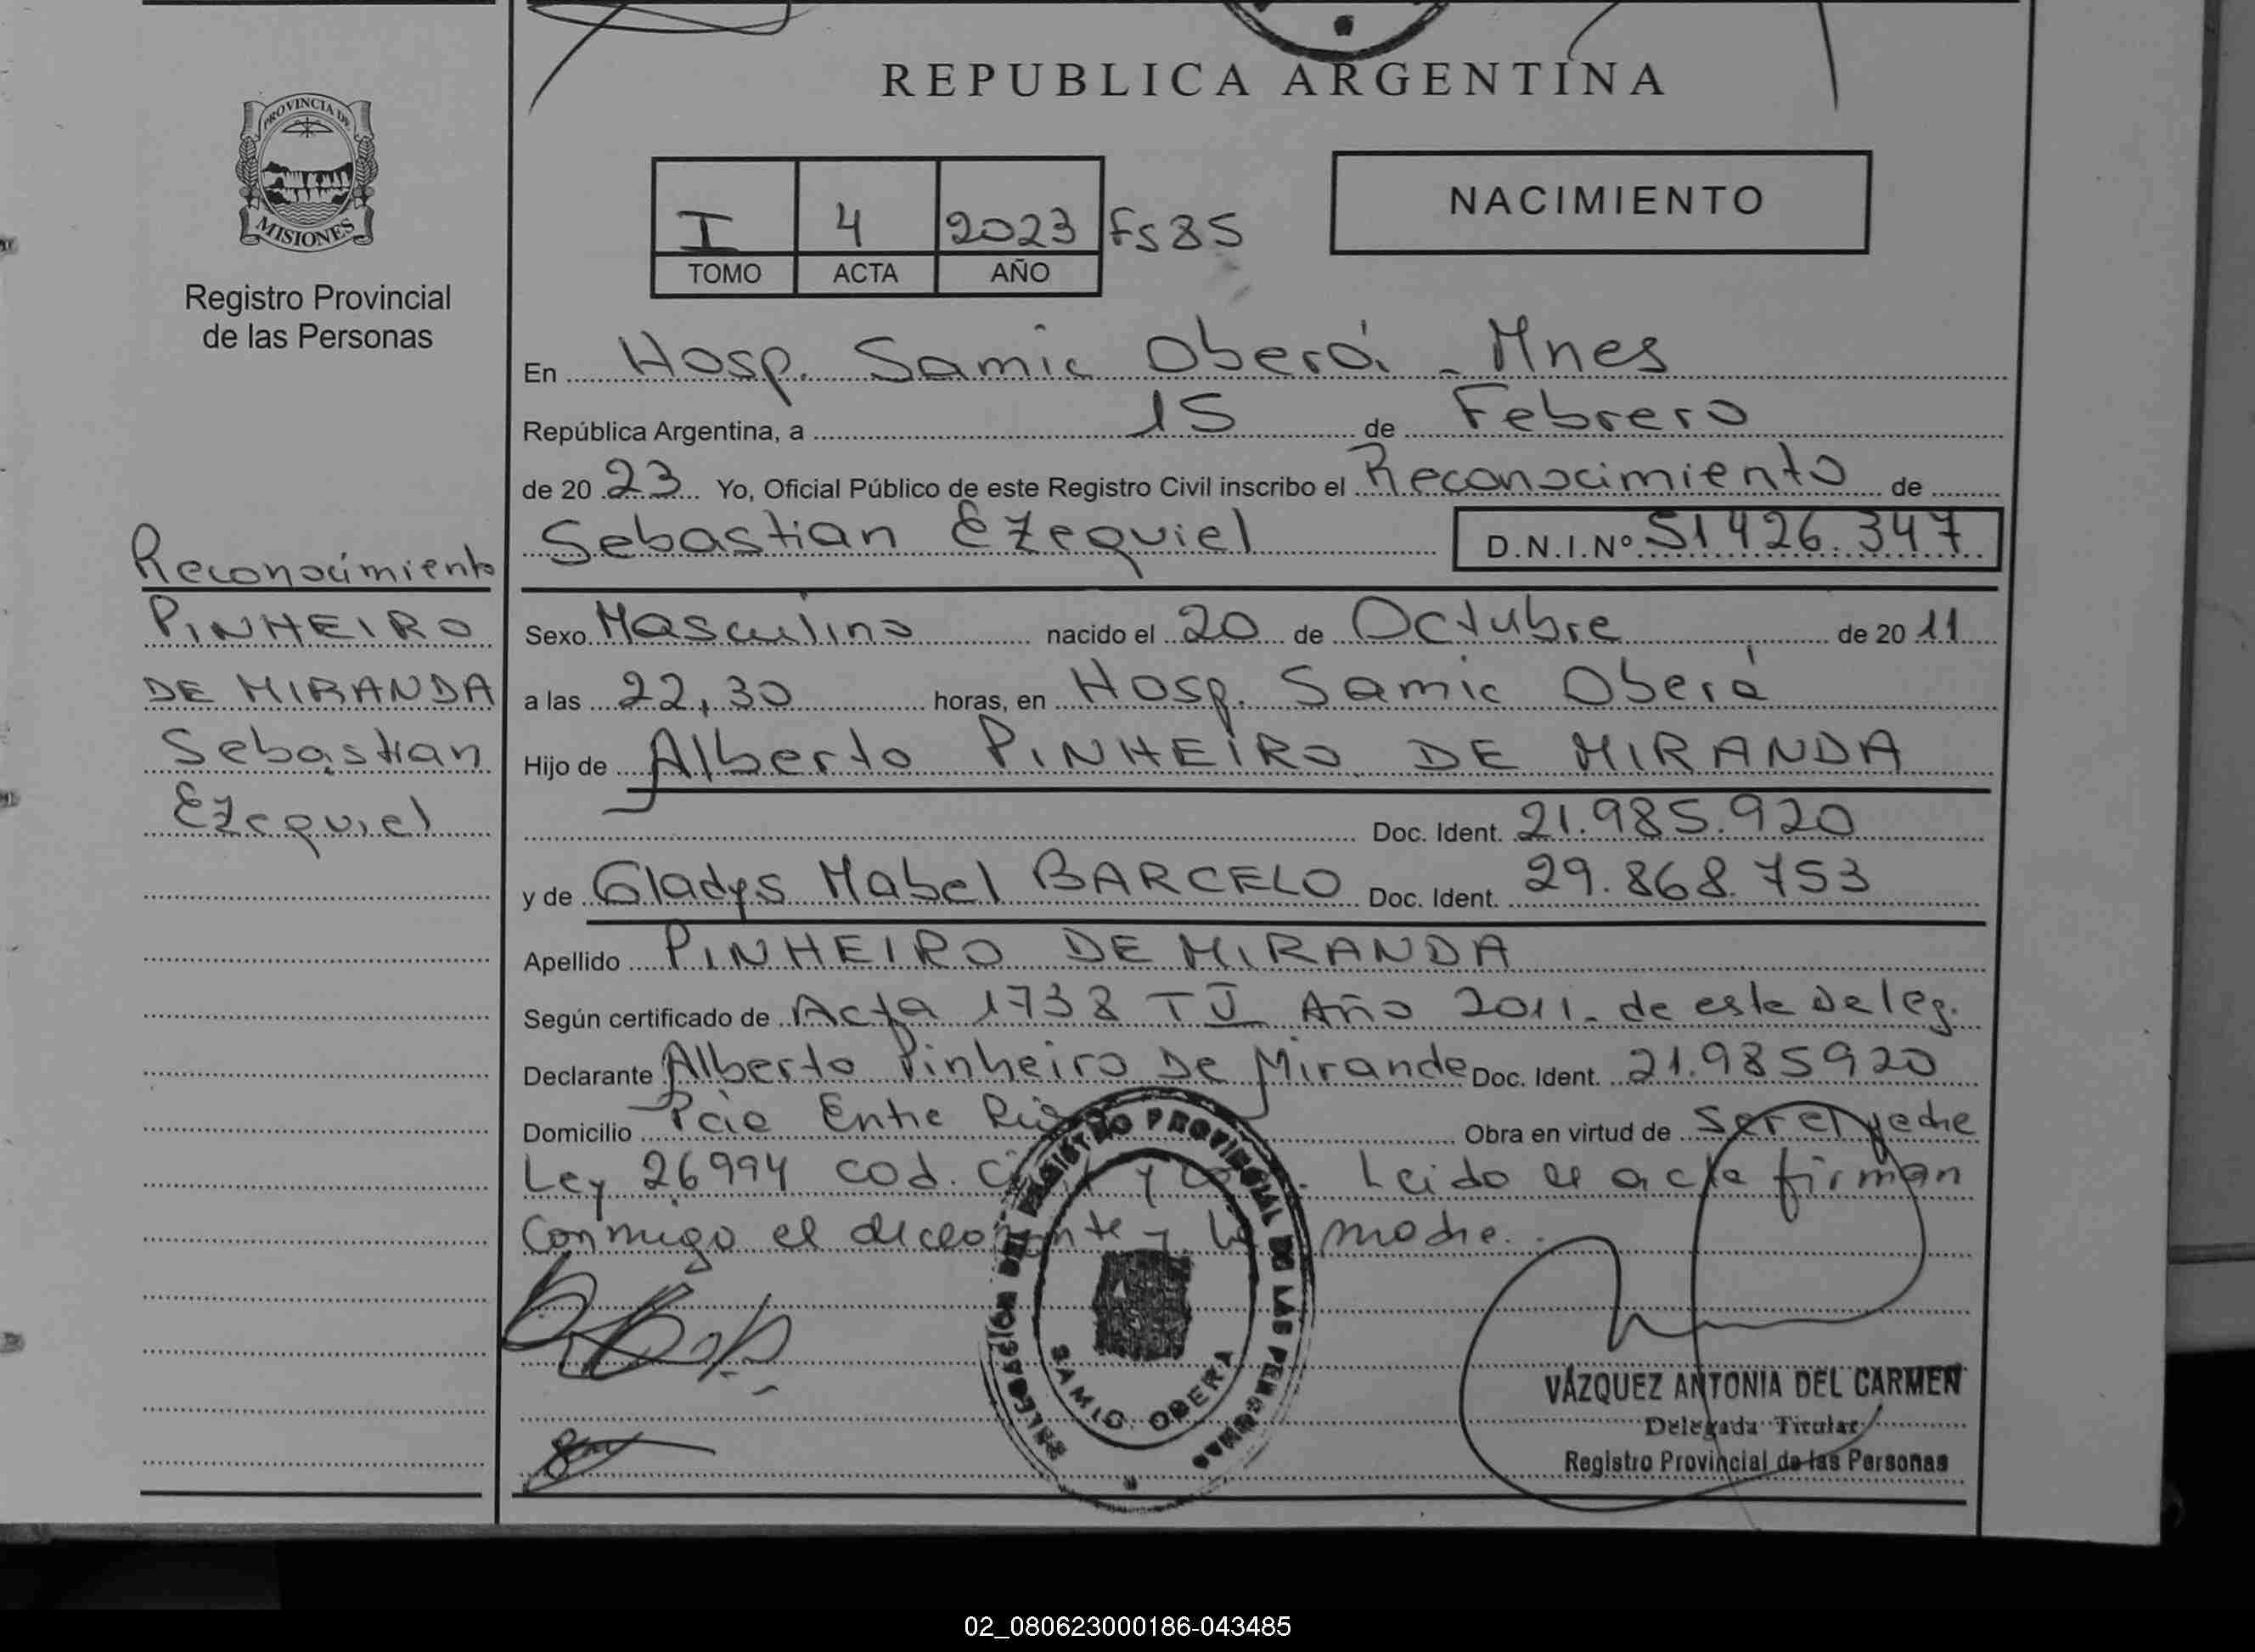 REPUBLICA ARGENTINA
PROVINCIA DE
MISIONES
Registro Provincial
de las Personas
I 4 2023 Fs 85
TOMO ACTA AÑO
NACIMIENTO
En Hosp. Samic Oberá - Mnes
República Argentina, a 15 de Febrero
de 20 23 Yo, Oficial Público de este Registro Civil inscribo el Reconocimiento de
Sebastian Ezequiel D.N.I.Nº 51426.347
Reconocimiento
PINHEIRO
DE MIRANDA
Sebastian
Ezequiel
Sexo Masculino nacido el 20 de Octubre de 20 11
a las 22,30 horas, en Hosp. Samic Oberá
Hijo de Alberto PINHEIRO DE MIRANDA
Doc. Ident. 21.985.920
y de Gladys Mabel BARCELO Doc. Ident. 29.868.753
Apellido PINHEIRO DE MIRANDA
Según certificado de Acta 1738 Año 2011. de este Deleg.
Declarante Alberto Pinheiro De Miranda Doc. Ident. 21.985920
Domicilio Pcia Entre Obra en virtud de Ser el padre
Ley 26994 cod. y Leido el acta firman
Conmigo el declarante y la madre.
DELEGACIÓN DEL REGISTRO PROVINCIAL DE LAS PERSONAS
SAMIC OBERA
VÁZQUEZ ANTONIA DEL CARMEN
Delegada Titular
Registro Provincial de las Personas
02_080623000186-043485